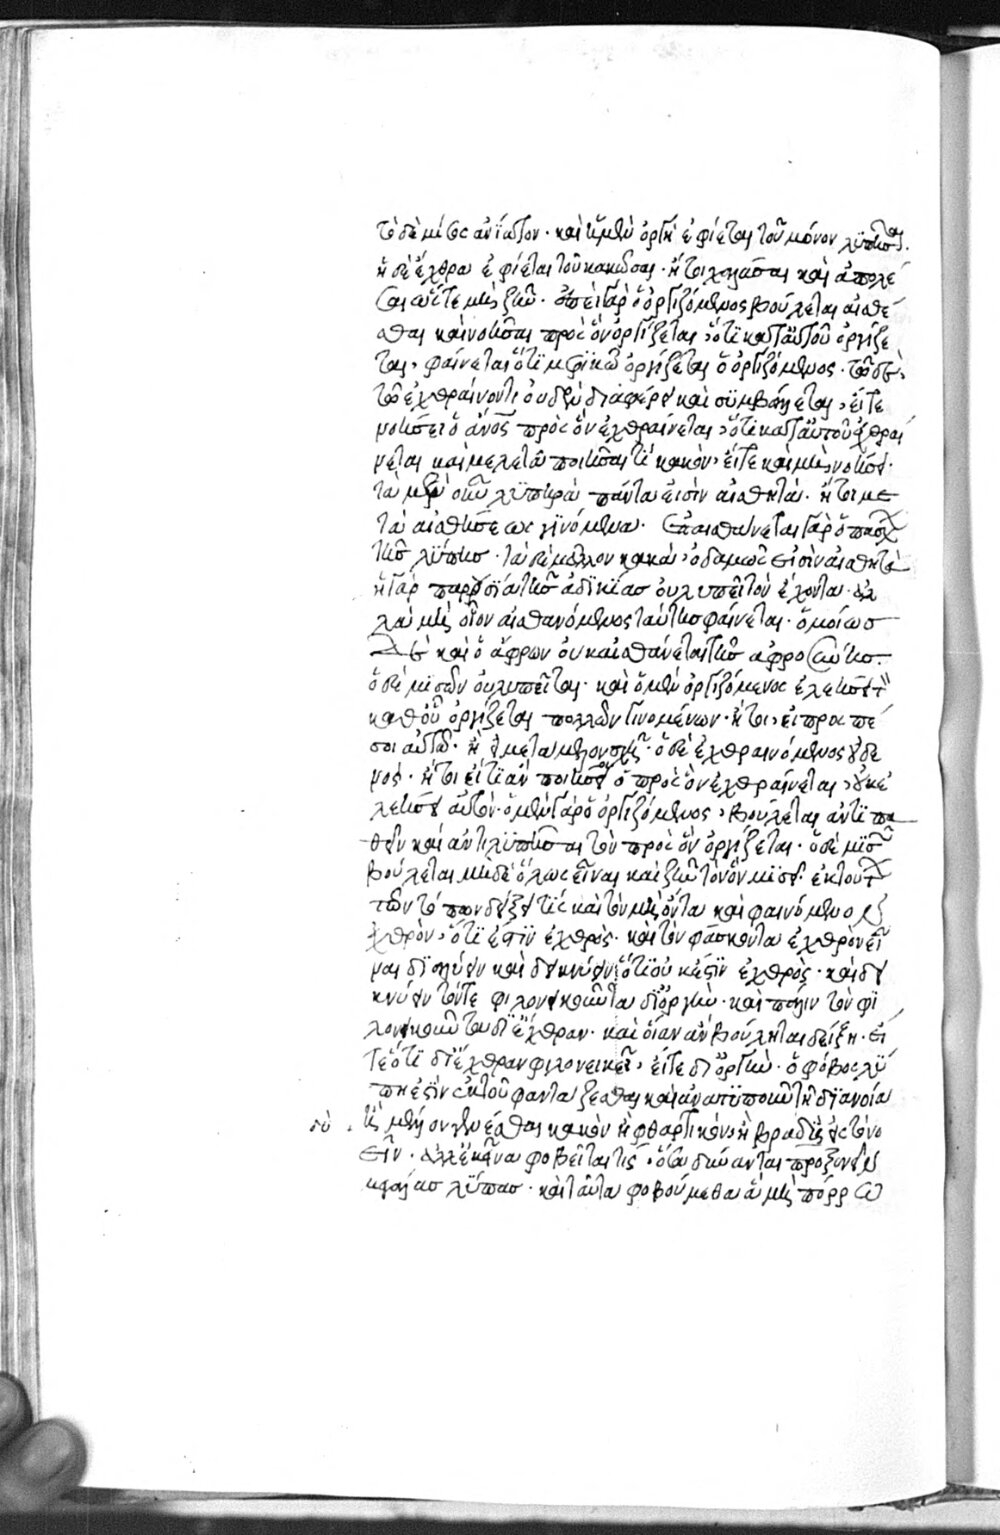 τὸ δὲ μῖσος ἀνίατον· καὶ ἡ μὲν ὀργὴ ἐφίεται τοῦ μόνον λυπῆσαι·
ἡ δὲ ἔχθρα ἐφίεται τοῦ κακῶσαι· ἤτοι χολᾶσαι καὶ ἀπολέ
σαι ὥστε μὴ ζῆν· ἐπεὶ γὰρ ὁ ὀργιζόμενος βούλεται αἰσθέ
σθαι καὶ νοῆσαι πρὸς ὃν ὀργίζεται, ὅτι κατ' αὐτοῦ ὀργίζε
ται, φαίνεται ὅτι μερικῶς ὀργίζεται ὁ ὀργιζόμενος· τῶ δὲ
τῶ ἐχθραίνοντι οὐδὲν διαφέρει καὶ συμβάλλεται, εἴτε
νοήσει ὁ ἄνος πρὸς ὃν ἐχθραίνεται, ὅτι κατ' αὐτοῦ ἐχθραί
νεται καὶ μελετᾶ ποιῆσαι τι κακὸν, εἴτε καὶ μὴ νοήσει·
τὰ μὲν οὖν λυπηρὰ πάντα εἰσὶν αἰσθητά· ἤτοι με
τὰ αἰσθήσεως γινόμενα· ἐπαισθάνεται γὰρ ὁ πάσχων
τῆς λύπης· τὰ δὲ μᾶλλον κακὰ, οὐδαμῶς εἰσὶν αἰσθητὰ
ἡ γὰρ παρουσία τῆς ἀδικίας οὐ λυπεῖ τὸν ἔχοντα· ἀλ
λὰ μὴ οἷον αἰσθανόμενος ταύτης φαίνεται· ὁμοίως
δὲ καὶ ὁ ἄφρων οὐκ αἰσθάνεται τῆς ἀφροσύνης·
ὁ δὲ μισῶν οὐ λυπεῖται· καὶ ὁ μὲν ὀργιζόμενος ἐλεήσει τὸν
καθ' οὗ ὀργίζεται πολλῶν γινομένων· ἤτοι, εἰ προσπέ
σοι αὐτῶ· ἢ μεταμέλον σχῆ· ὁ δὲ ἐχθραινόμενος οὐδε
νός· ἤτοι εἴτι ἂν ποιήσοι ὁ πρὸς ὃν ἐχθραίνεται, οὐκ ἐ
λεήσει αὐτὸν· ὁ μὲν γὰρ ὁ ὀργιζόμενος, βούλεται ἀντιπα
θεῖν καὶ ἀντιλυπῆσαι τὸν πρὸς ὃν ὀργίζεται· ὁ δὲ μισῶν
βούλεται μηδὲ ὅλως εἶναι καὶ ζῆν τὸν ὃν μισεῖ· ἐκ τούτων
τῶν τόπων δείξει τίς καὶ τὸν μὴ ὄντα καὶ φαινόμενον
ἐχθρὸν, ὅτι ἐστὶν ἐχθρὸς· καὶ τὸν φάσκοντα ἐχθρὸν εἶ
ναι διαλύειν καὶ δεικνύειν ὅτι οὐκ ἔστιν ἐχθρὸς· καὶ δει
κνύειν τόντε φιλονεικοῦντα δι' ὀργὴν· καὶ πάλιν τὸν φι
λονεικοῦντα δι' ἔχθραν· καὶ οἵαν ἂν βούληται δείξη· εἴ
τε ὅτι δι' ἔχθραν φιλονεικεῖ, εἴτε δι' ὀργὴν· ὁ φόβος λύ
πη ἐστὶν ἐκ τοῦ φαντάζεσθαι καὶ ἀνατυποῦν τῆ διανοία
τὶς μέλλον γενέσθαι κακὸν ἢ φθαρτικὸν, ἢ βραδὺς εἰς τὸ νο
εῖν· ἀλλ' ἐκεῖνα φοβεῖται τίς, ὅσα δύνανται προξενεῖν
μεγάλας λύπας· καὶ ταῦτα φοβούμεθα ἂ μὴ πόρρω